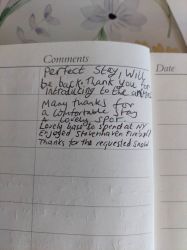 Comments
Date
Perfect Stay, Will
be back. Thank you for
introducing to the
Many thanks for
a comfortable stay
a lovely spot.
Lovely base to spend at NY
enjoyed Stonehaven Fireball
Thanks for the requested snow!